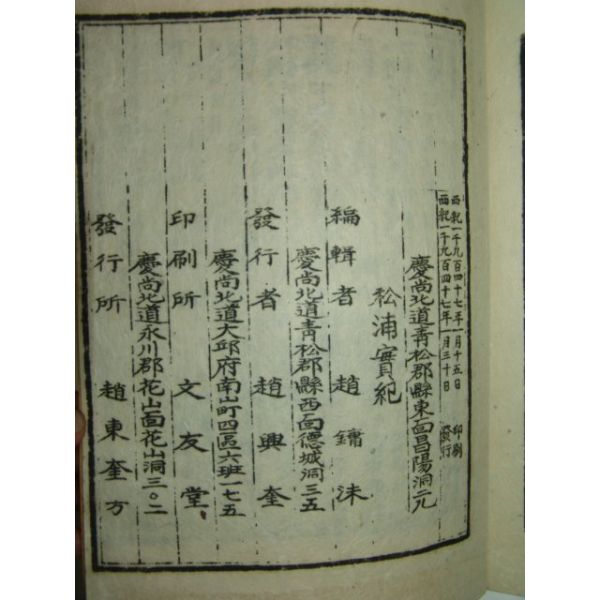 西紀一千九百四十七年一月十五日 印刷
西紀一千九百四十七年一月三十日 發行
慶尙北道靑松郡縣東面昌陽洞二九
松浦實紀
編輯者 趙鏞沫
慶尙北道靑松郡縣西面德城洞三五
發行者 趙興奎
慶尙北道大邱府南山町四區六班一七五
印刷所 文友堂
慶尙北道永川郡花山面花山洞三〇二
發行所 趙東奎方